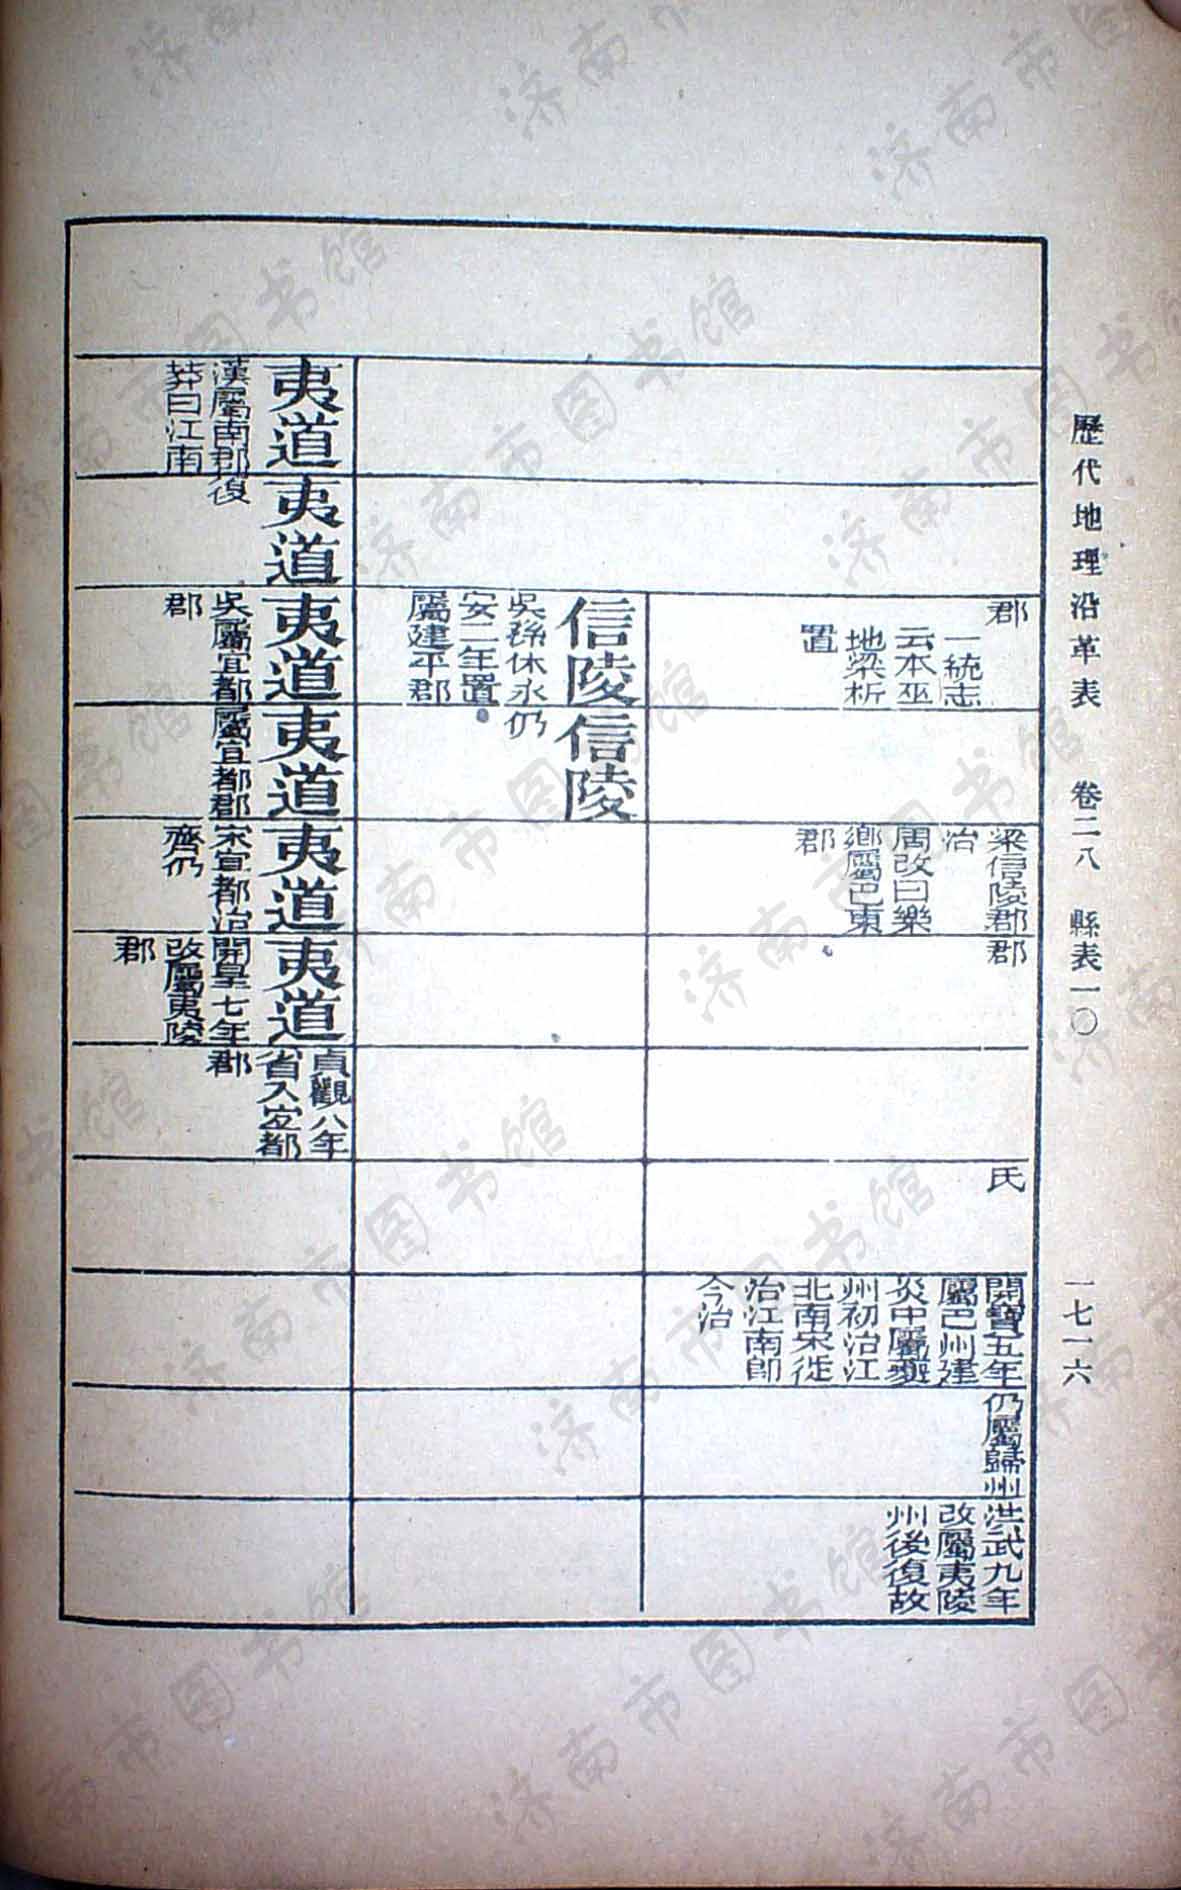 歷代地理沿革表 卷二八 縣表一〇 一七一六
郡
一統志
云本巫
地梁析
置
梁信陵郡
治
周改曰樂
鄉屬巴東
郡
郡
氏
開寶五年
屬巴州建
炎中屬夔
州初治江
北南宋徙
治江南即
今治
仍屬歸州
洪武九年
改屬夷陵
州後復故
信陵
吳孫休永
安二年置
屬建平郡
信陵
仍
夷道
漢屬南郡
莽曰江南
夷道
復
夷道
吳屬宜都
郡
夷道
屬宜都郡
夷道
宋宜都治
齊仍
夷道
開皇七年
改屬夷陵
郡
貞觀八年
省入宜都
郡
济南市图书馆